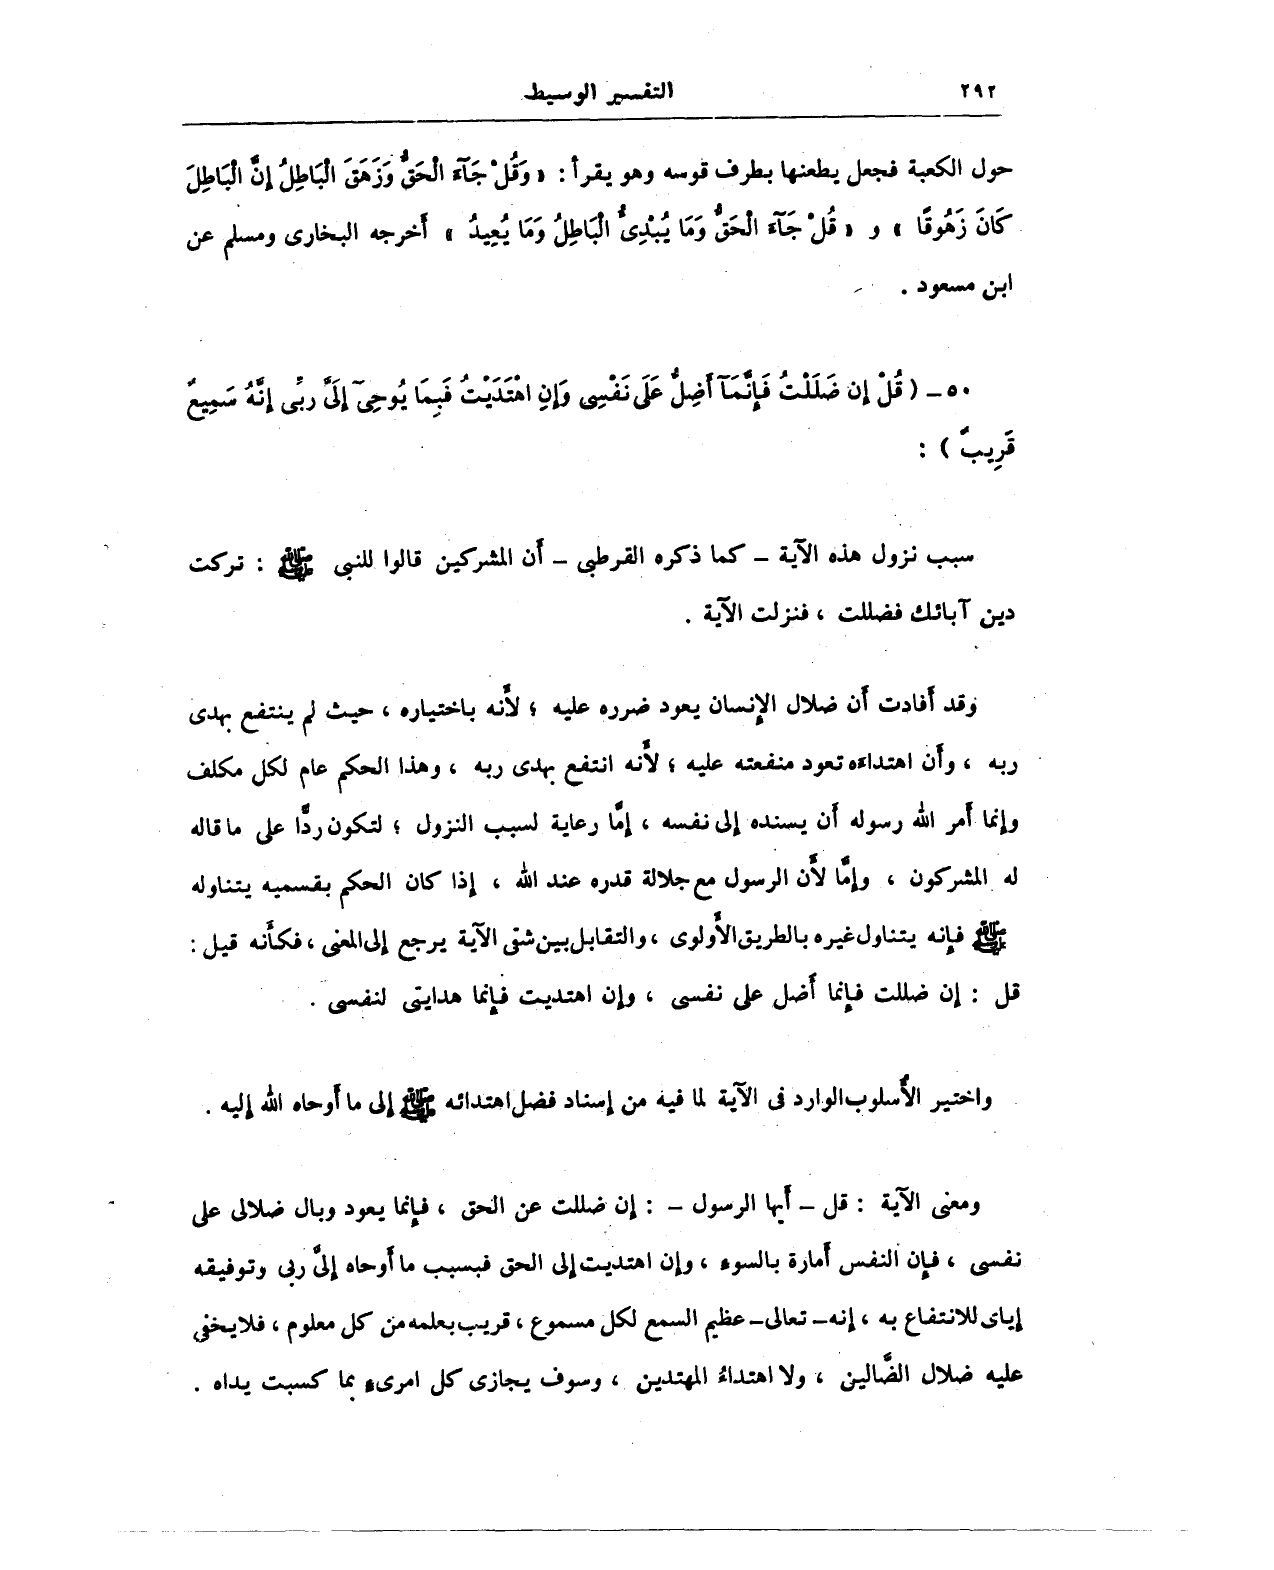 ٢٩٢ التفسير الوسيط
حول الكعبة فجعل يطعنها بطرف قوسه وهو يقرأ : « وَقُلْ جَآءَ الْحَقُّ وَزَهَقَ الْبَاطِلُ إِنَّ الْبَاطِلَ
كَانَ زَهُوقًا » و « قُلْ جَآءَ الْحَقُّ وَمَا يُبْدِئُ الْبَاطِلُ وَمَا يُعِيدُ » أخرجه البخارى ومسلم عن
ابن مسعود .
٥٠ – ( قُلْ إِن ضَلَلْتُ فَإِنَّمَآ أَضِلُّ عَلَى نَفْسِى وَإِنِ اهْتَدَيْتُ فَبِمَا يُوحِىٓ إِلَىَّ رَبِّى إِنَّهُ سَمِيعٌ
قَرِيبٌ ) :
سبب نزول هذه الآية – كما ذكره القرطبى – أن المشركين قالوا للنبى ﷺ : تركت
دين آبائك فضللت ، فنزلت الآية .
وقد أفادت أن ضلال الإنسان يعود ضرره عليه ؛ لأنه باختياره ، حيث لم ينتفع بهدى
ربه ، وأن اهتداءه تعود منفعته عليه ؛ لأنه انتفع بهدى ربه ، وهذا الحكم عام لكل مكلف
وإنما أمر الله رسوله أن يسنده إلى نفسه ، إمَّا رعاية لسبب النزول ؛ لتكون ردًّا على ما قاله
له المشركون ، وإمَّا لأن الرسول مع جلالة قدره عند الله ، إذا كان الحكم بقسميه يتناوله
ﷺ فإنه يتناول غيره بالطريق الأولوى ، والتقابل بين شقى الآية يرجع إلى المعنى ، فكأنه قيل :
قل : إن ضللت فإنما أضل على نفسى ، وإن اهتديت فإنما هدايتى لنفسى .
واختير الأسلوب الوارد فى الآية لما فيه من إسناد فضل اهتدائه ﷺ إلى ما أوحاه الله إليه .
ومعنى الآية : قل – أيها الرسول – : إن ضللت عن الحق ، فإنما يعود وبال ضلالى على
نفسى ، فإن النفس أمارة بالسوء ، وإن اهتديت إلى الحق فبسبب ما أوحاه إلىَّ ربى وتوفيقه
إياى للانتفاع به ، إنه – تعالى – عظيم السمع لكل مسموع ، قريب بعلمه من كل معلوم ، فلا يخفى
عليه ضلال الضَّالين ، ولا اهتداءُ المهتدين ، وسوف يجازى كل امرىء بما كسبت يداه .